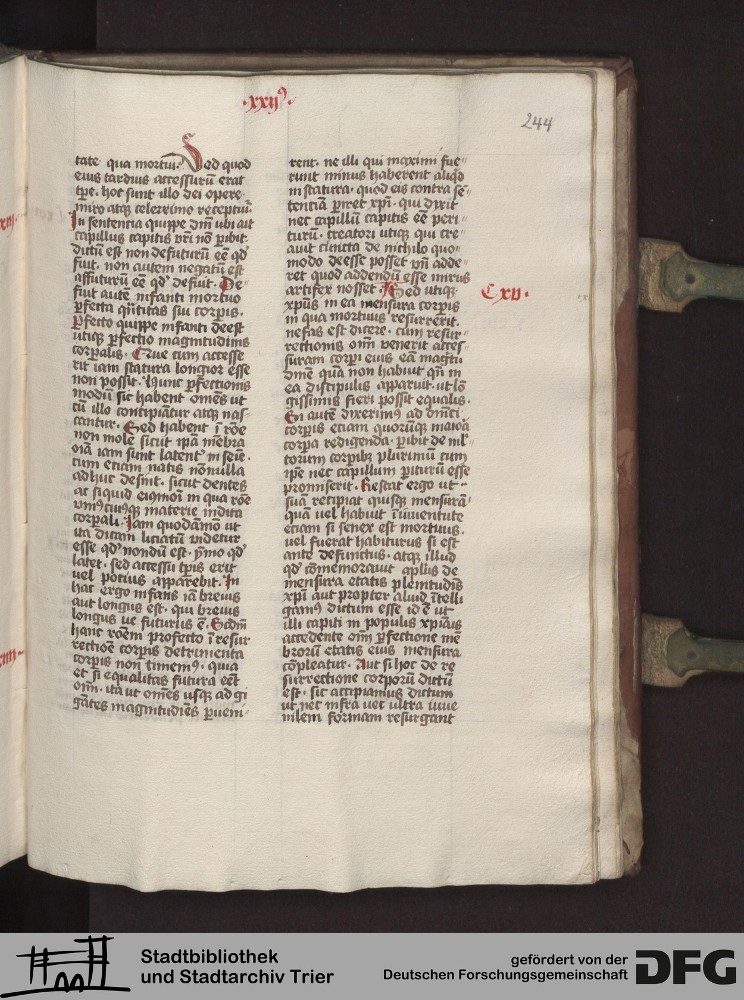 ·xxijꝰ·
244
tate qua mortui· Sed quod
eius tardius accessurū erat
tꝑe· hoc sunt illo dei opere
miro atqꝫ celerrimo receptui·
In sentencia quippe dn̄i ubi ait
capillus capitis vr̄i nō ꝑibit·
dictū est non defuturū eē qd̓
fuit· non autem negatū est
affuturū eē qd̓ defuit· De-
fuit autē infanti mortuo
ꝑfecta qn̄titas sui corpis·
Ꝑfecto quippe infanti deest
utiqꝫ ꝑfectio magnitudinis
corꝑalis· Que cum accesse
rit iam statura longior esse
non possit· Hunc ꝑfectionis
modū sic habent om̄es ut
cū illo concipiātur atqꝫ nas-
cantur· Sed habent ī rōe
non mole sicut ip̄a mēbra
oīa iam sunt latent̓ in seīe·
cum eciam natis nōnulla
adhuc desint· sicut dentes
ac siquid eiꝰmōi in qua rōe
vniꝰcuiꝰqꝫ materie indita
corꝑali· Iam quodāmō ut
ita dicam liciatū videtur
esse qd̓ nondū est· ymo qd̓
latet· sed accessu tꝑis erit
vel pocius apparebit· In
hac ergo infans iā breuis
aut longus est· qui breuis
longus ue futurus ē· Scdm̄
hanc rōem profecto ī resur
rectiōe corpis detrimenta
corpis non timemꝰ· quia
et si equalitas futura eēt
om̄i· ita ut om̄es usqꝫ ad gi
gātes magnitudīes ꝑueni-
rent· ne illi qui maximi fue-
runt minus haberent aliqd̓
in statura· quod eis contra sē-
tenciā ꝑiret xp̄i· qui dixit
nec capillū capitis eē peri-
turū· creatori utiqꝫ qui cre-
auit cuncta de nichilo quo-
modo deesse posset vn̄ adde-
ret quod addendū esse mirus
artifex nosset· Sed utiqꝫ
Cxv·
xp̄us in ea mensura corpis
in qua mortuus resurrexit·
nefas est dicere· cum resur-
rectionis om̄i venerit acces
suram corpi eius eā magtu
dinē quā non habuit qn̄ in
ea discipulis apparuit· ut lō
gissimis fieri possit equalis·
Si autē dixerimꝰ ad dn̄ici
corpis eciam quorūqꝫ maiora
corpa redigenda· ꝑibit de ml̓-
torum corpibꝫ plurimū cum
ip̄e nec capillum ꝑiturū esse
promiserit· Restat ergo ut
suā recipiat quisqꝫ mensurā
quā vel habuit ī iuuentute
eciam si senex est mortuus·
vel fuerat habiturus si est
ante defunctus· atqꝫ illud
qd̓ cōmemorauit apl̄us de
mensura etatis plenitudīs
xp̄i aut propter aliud ītelli
gamꝰ dictum esse id ē ut
illi capiti in populis xp̄iāis
accedente om̄i ꝑfectione mē
brorū etatis eius mensura
cōpleatur· Aut si hoc de re
surrectione corporū dictū
est· sic accipiamus dictum
ut nec infra nec ultra iuue
nilem formam resurgant
Stadtbibliothek
und Stadtarchiv Trier
gefördert von der
Deutschen Forschungsgemeinschaft
DFG